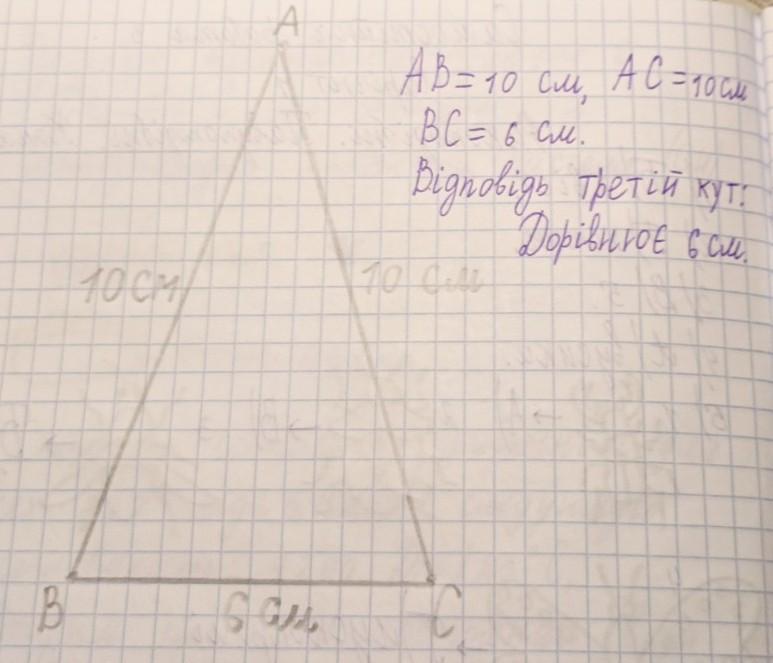 A
AB = 10 см, AC = 10 см
BC = 6 см.
Відповідь третій кут:
Дорівнює 6 см.
10 см
10 см
B
6 см
C